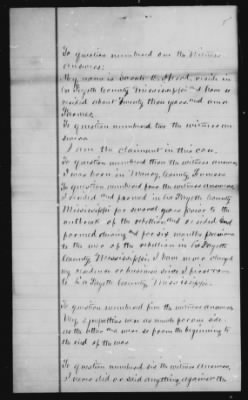 To question numbered one the witness
answers:
My name is
Fayette County Mississippi I have
resided about Twenty three years and am a
Farmer
To question numbered two the witness an
swers
I am the claimant in this case.
To question numbered three the witness answers
I was born in Maury County Tennessee
To question numbered four the witness answers
I resided and farmed in La Fayette County
Mississippi for several years prior to the
outbreak of the rebellion and resided and
farmed during and for six months previous
to the war of the rebellion in La Fayette
County Mississippi. I have never changed
my residence or business since I first came
to La Fayette County Mississippi
To question numbered five the witness answers
My sympathies were as much for one side
as the other and were so from the beginning to
the end of the war
To question numbered six the witness answers,
I never did or said anything against the